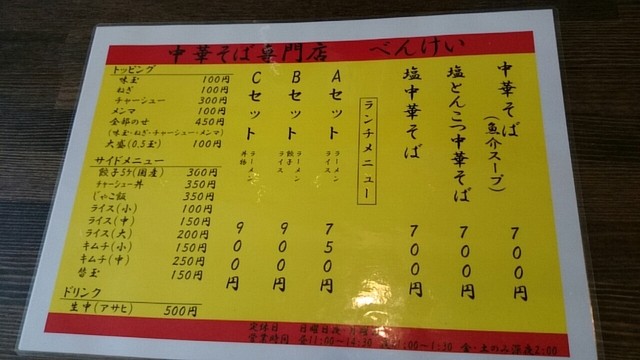 中華そば専門店 べんけい
中華そば(魚介スープ) 700円
塩とんこつ中華そば 700円
塩中華そば 700円
ランチメニュー
Aセット ラーメン ライス 750円
Bセット ラーメン 餃子 ライス 900円
Cセット ラーメン 丼物 900円
トッピング
味玉 100円
ねぎ 100円
チャーシュー 300円
メンマ 100円
全部のせ 450円
(味玉・ねぎ・チャーシュー・メンマ)
大盛(0.5玉) 100円
サイドメニュー
餃子5ケ(国産) 360円
チャーシュー丼 350円
じゃこ飯 350円
ライス(小) 100円
ライス(中) 150円
ライス(大) 200円
キムチ(小) 150円
キムチ(中) 250円
替玉 150円
ドリンク
生中(アサヒ) 500円
定休日 日曜日夜・月曜
営業時間 昼11:00〜14:30 :00〜1:30 金・土のみ深夜2:00